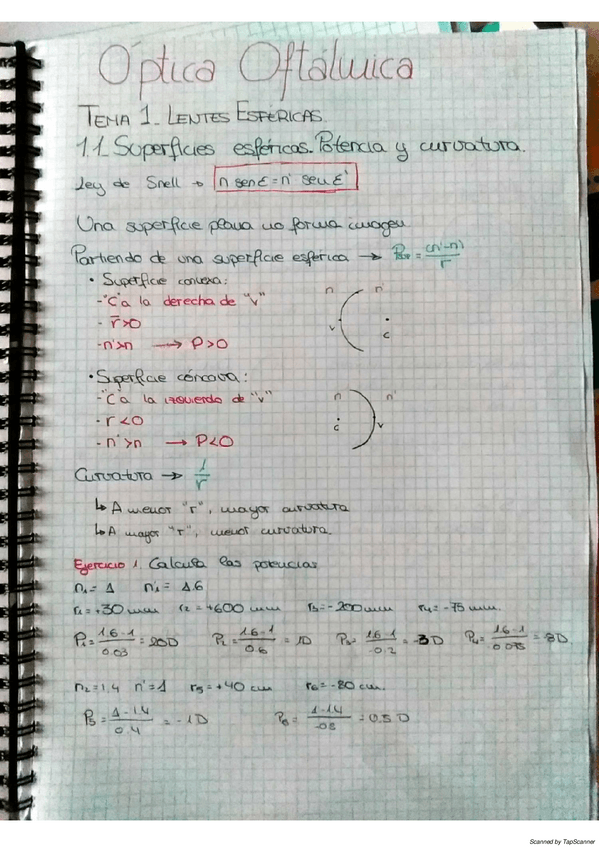 Óptica Oftálmica
TEMA 1_ LENTES ESFÉRICAS.
1.1_ Superficies esféricas. Potencia y curvatura.
Ley de Snell → n senε = n' senε'
Una superficie plana no forma imagen
Partiendo de una superficie esférica → = (n'-n)/r
• Superficie convexa:
- "C" a la derecha de "V"
- r>0
- n'>n → P>0
n n'
V C
• Superficie cóncava:
- "C" a la izquierda de "V"
- r<0
- n'>n → P<0
n n'
C V
Curvatura → 1/r
↳ A menor "r", mayor curvatura
↳ A mayor "r", menor curvatura.
Ejercicio 1. Calcula las potencias
n₁= 1 n'₁= 1.6
r₁=+30 mm r₂=+600 mm r₃=-200 mm r₄=-75 mm.
P₁= 1.6-1/0.03 = 20D P₂= 1.6-1/0.6 = 1D P₃= 1.6-1/-0.2 = -3D P₄= 1.6-1/-0.075 = -8D
n₂=1,4 n'=1 r₅=+40 cm r₆=-80 cm.
P₅= 1-1.4/0.4 = -1D P₆= 1-1.4/-0.8 = 0.5D
Scanned by TapScanner